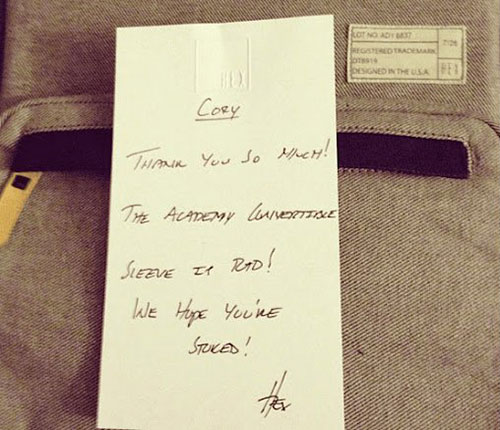 HEX
Cory
Thank you so much!
The Academy Convertible
Sleeve is rad!
We hope you're
stoked!
Hex
LOT NO. ADY 6837
7/26
REGISTERED TRADEMARK
DESIGNED IN THE U.S.A.
HEX